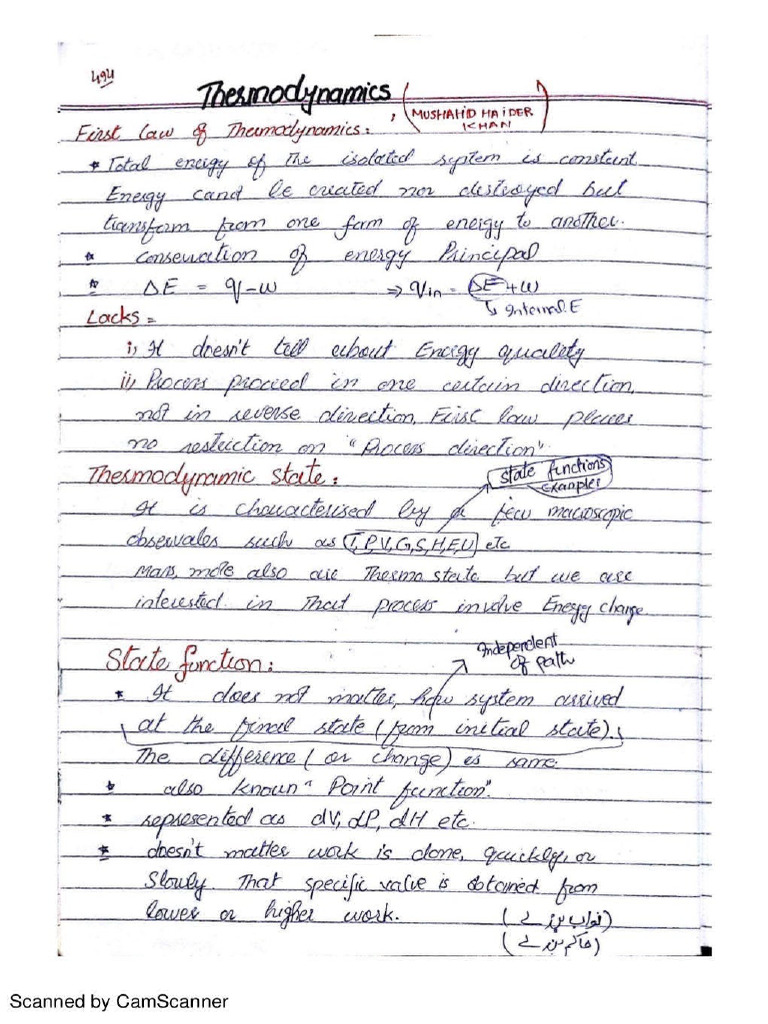 494
Thermodynamics
, (MUSHAHID HAIDER
KHAN)
First law of Thermodynamics:
* Total energy of the isolated system is constant
Energy cand be created nor destroyed but
transform from one form of energy to another.
* conservation of energy Principal
* ΔE = q-w => qin = ΔE+w
↳ Internal.E
Lacks =
i) It doesn't tell about Energy quality
ii) Process proceed in one certain direction,
not in reverse direction, First law places
no restriction on "Process direction".
Thermodynamic state:
state functions
examples
It is characterised by a few macroscopic
observales such as T,P,V,G,S,H,E,U etc
Mass, mole also are Thermo state but we are
interested in That process involve Energy charge
State function:
Independent
of path
* It does not matter, how system arrived
at the final state (from initial state).
The difference (or change) is same
* also known "Point function".
* represented as dV, dP, dH etc.
* doesn't matter work is done, quickly, or
Slowly. That specific value is obtained from
lower or higher work.
Scanned by CamScanner